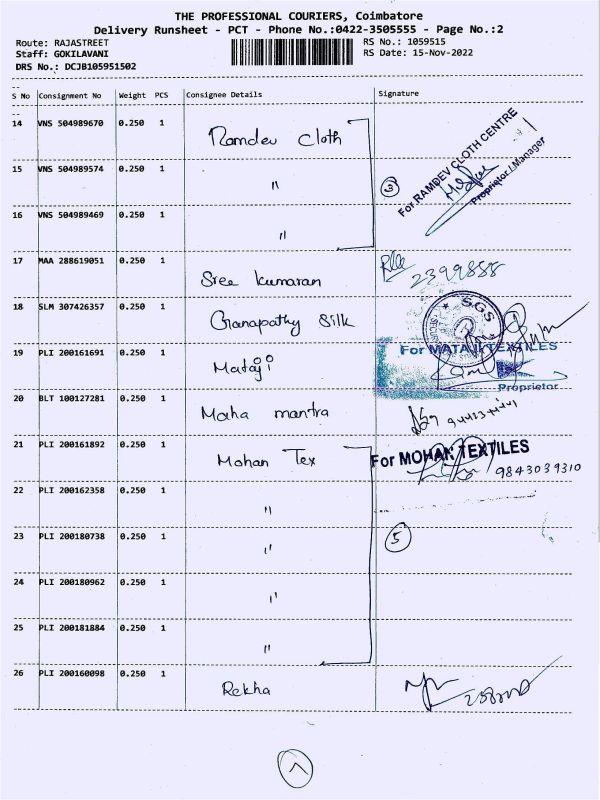 THE PROFESSIONAL COURIERS, Coimbatore
Delivery Runsheet - PCT - Phone No.:0422-3505555 - Page No.:2
Route: RAJASTREET
RS No.: 1059515
Staff: GOKILAVANI
RS Date: 15-Nov-2022
DRS No.: DCJB105951502
S No Consignment No Weight PCS Consignee Details Signature
14 VNS 504989670 0.250 1 Ramdev Cloth
For RAMDEV CLOTH CENTRE
Proprietor / Manager
15 VNS 504989574 0.250 1 "
3
16 VNS 504989469 0.250 1 "
17 MAA 288619051 0.250 1 Sree kumaran
2399888
18 SLM 307426357 0.250 1 Ganapathy Silk
S.G.S
19 PLI 200161691 0.250 1 Mataji
For MATAJI TEXTILES
Proprietor
20 BLT 100127281 0.250 1 Maha mantra
21 PLI 200161892 0.250 1 Mohan Tex
For MOHAN TEXTILES
9843039310
22 PLI 200162358 0.250 1 "
23 PLI 200180738 0.250 1 "
5
24 PLI 200180962 0.250 1 "
25 PLI 200181884 0.250 1 "
26 PLI 200160098 0.250 1 Rekha